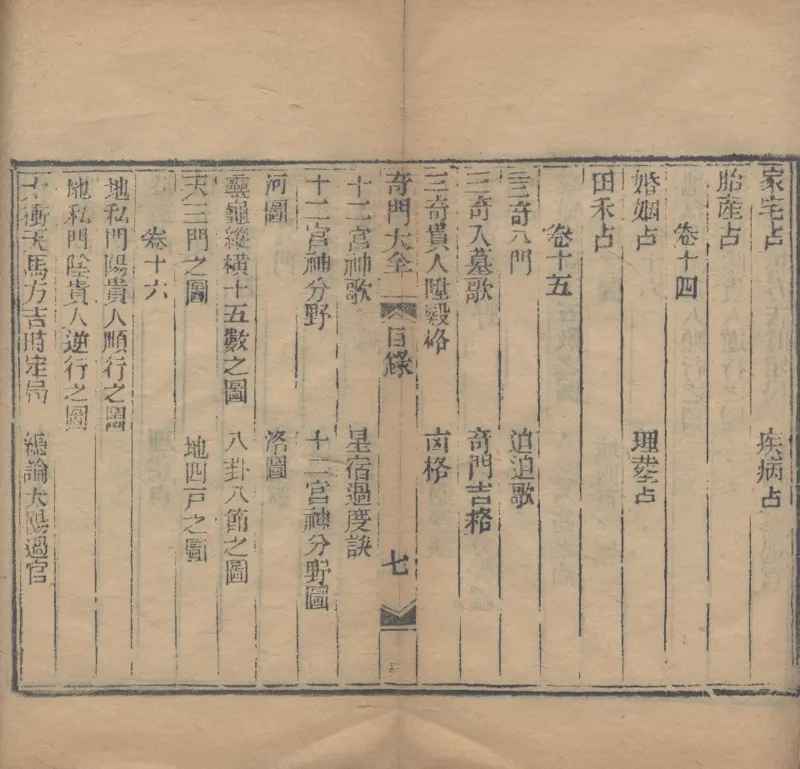 家宅占　疾病占
胎產占
卷十四
婚姻占　理塟占
田禾占
卷十五
三奇六門　迫迫歌
三奇入墓歌　奇門吉格
三奇貴人陞殿格　凶格
奇門大全　目錄　七
十二宮神歌　星宿過度訣
十二宮神分野　十二宮神分野圖
河圖　洛圖
靈龜縱橫十五數之圖　八卦八節之圖
天三門之圖　地四戸之圖
卷十六
地私門陽貴人順行之圖
地私門陰貴人逆行之圖
太衝天馬方吉時定局　總論太陽過宮